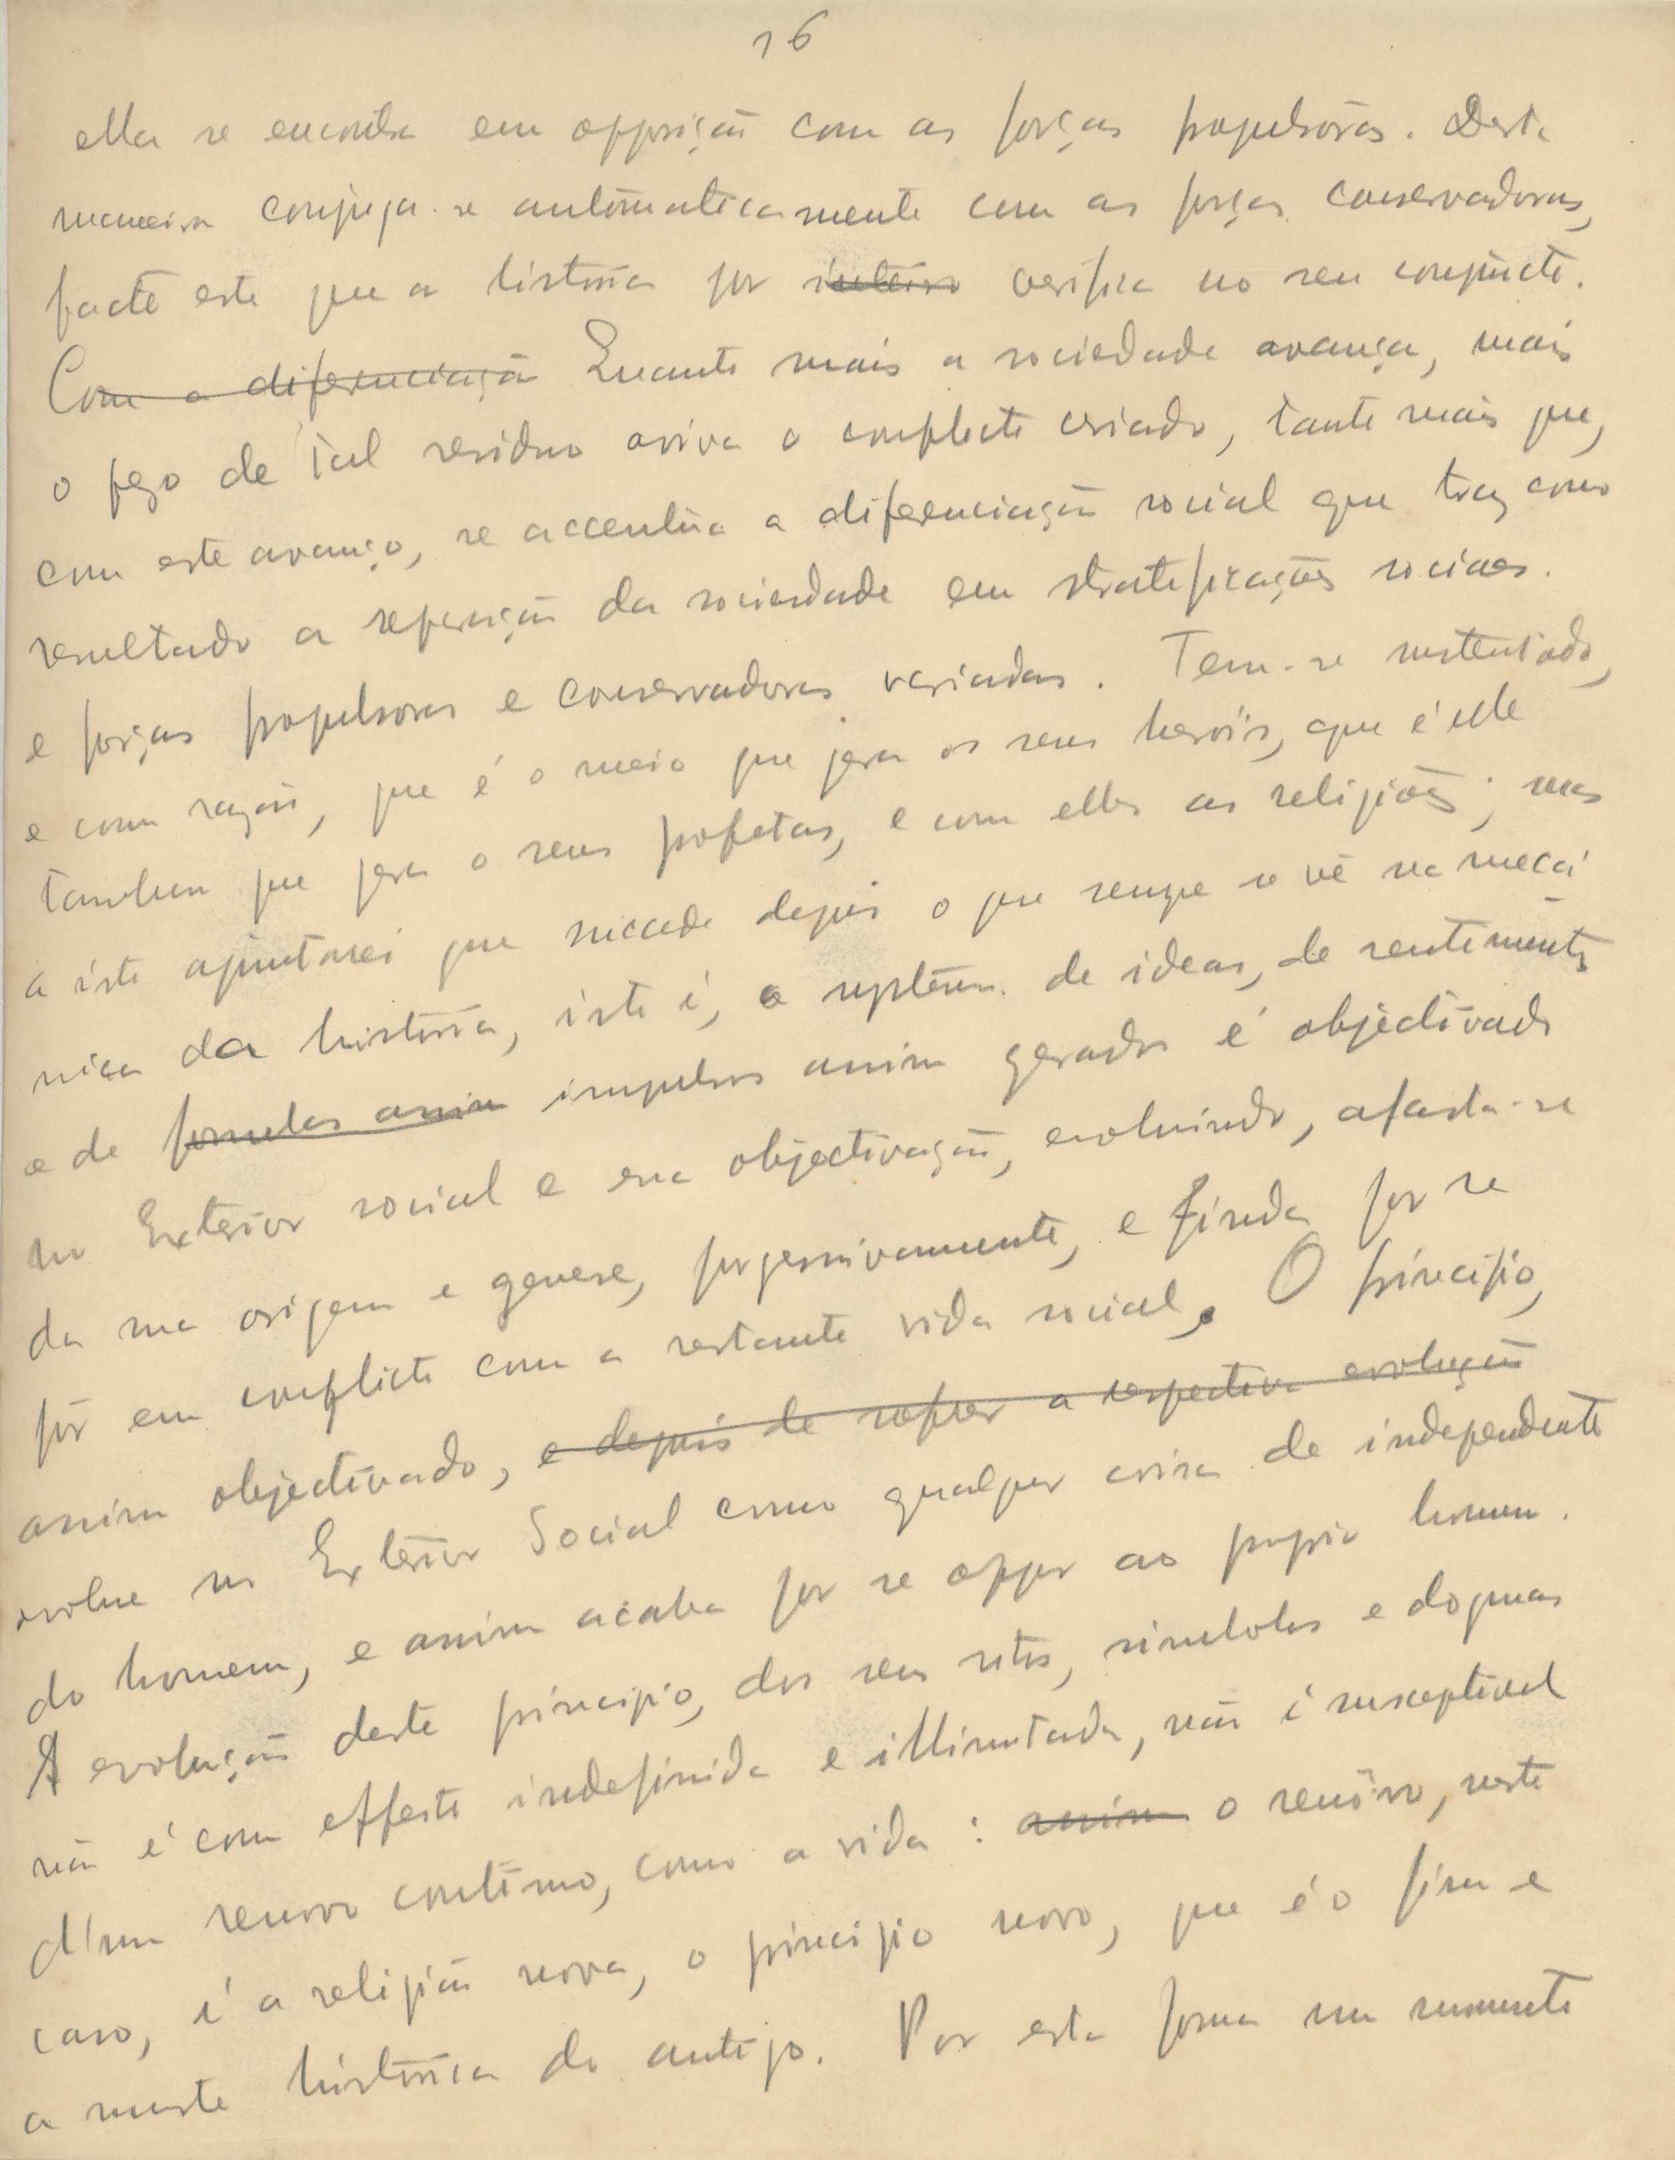 16
ella se encontra em opposição com as forças propulsoras. Desta
maneira conjuga-se automaticamente com as forças conservadoras,
facto este que a história por inteiro verifica no seu conjuncto.
Com a diferenciação Quanto mais a sociedade avança, mais
o pezo de tal residuo aviva o conflicto criado, tanto mais que,
com este avanço, se accentúa a diferenciação social que traz como
resultado a separação da sociedade em stratificações sociaes.
e forças propulsoras e conservadoras variadas. Tem-se sustentado,
e com razão, que é o meio que gera os seus heróis, que é elle
tambem que gera o seus profetas, e com elles as religiões; mas
a isto ajuntarei que succede depois o que sempre se vê na mecâ
nica da história, isto é, o systema de ideas, de sentimentos
e de formulas assim impulsos assim gerados é objectivado
no Exterior social e essa objectivação, evoluindo, afasta-se
da sua origem e genese, progressivamente, e finda por se
pôr em conflicto com a restante vida social. O principio,
assim objectivado, e depois de sofrer a respectiva evolução
evolue no Exterior Social como qualquer coisa de independente
do homem, e assim acaba por se oppor ao proprio homem.
A evolução deste principio, dos seus ritos, simbolos e dogmas
não é com effeito indefinida e illimitada, não é susceptivel
d'um renovo contínuo, como a vida: assim o renôvo, neste
caso, é a religião nova, o principio novo, que é o fim e
a morte histórica do antigo. Por esta forma um momento